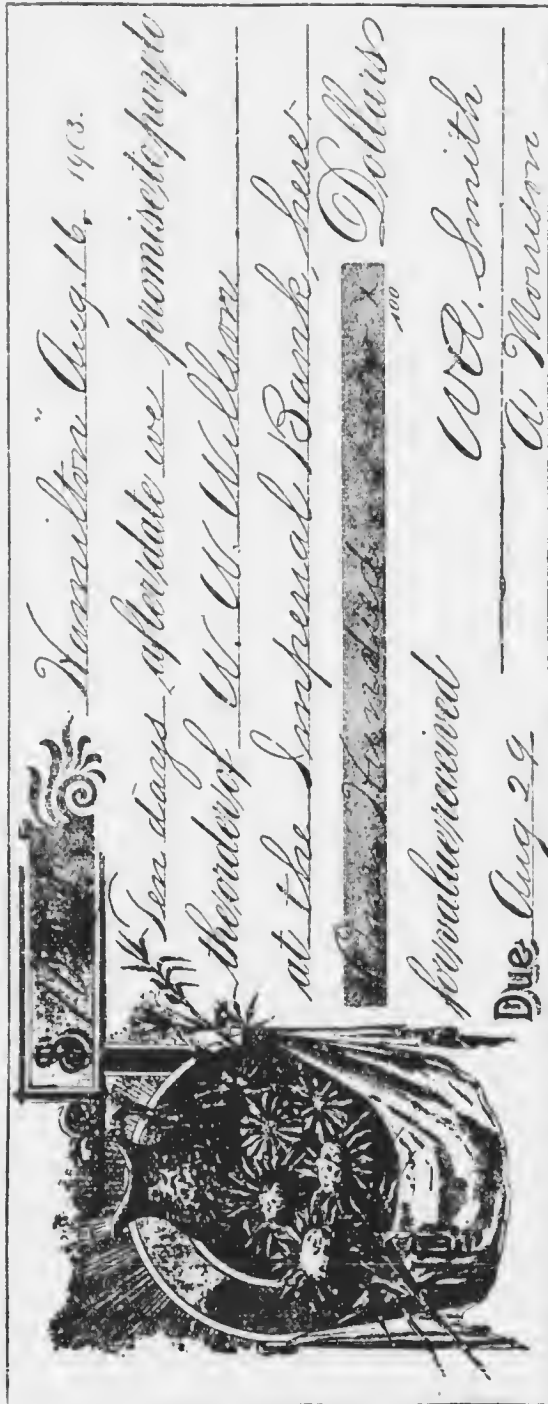 Hamilton Aug. 16, 1903.
Ten days after date we promise to pay to
the order of W. W. Wilson
at the Imperial Bank, here
Hundred x/100 Dollars
for value received
W. A. Smith
Due Aug 29
A. Morrison